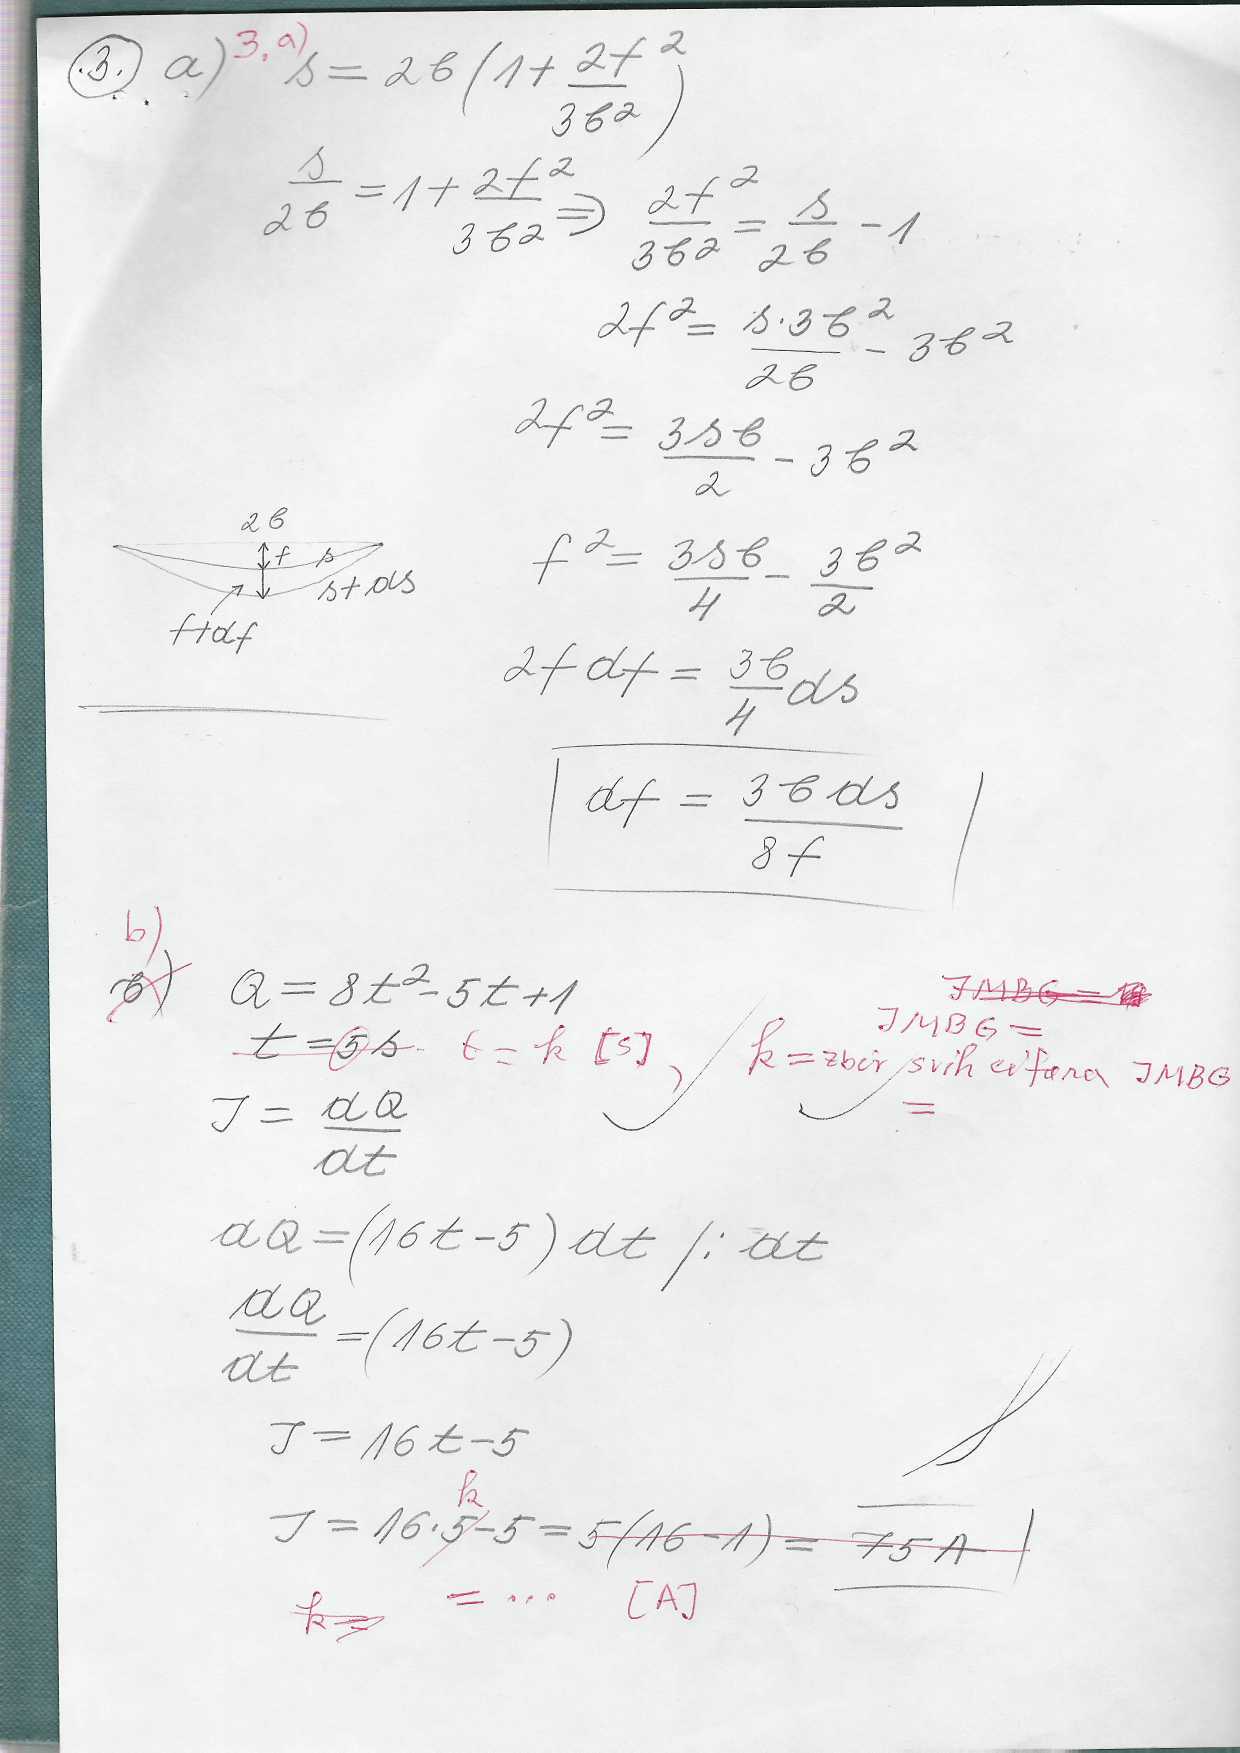 3. a) 3. a) s = 2b(1 + 2f²/3b²)
s/2b = 1 + 2f²/3b² ⇒ 2f²/3b² = s/2b - 1
2f² = s·3b²/2b - 3b²
2f² = 3sb/2 - 3b²
2b
f s
s+ds
f+df
f² = 3sb/4 - 3b²/2
2f df = 3b/4 ds
df = 3b ds/8f
b)
b) Q = 8t² - 5t + 1
JMBG =
JMBG =
t = 5s t = k [s], k = zbir svih cifara JMBG
=
J = dQ/dt
dQ = (16t - 5) dt /: dt
dQ/dt = (16t - 5)
J = 16t - 5
k
J = 16·5 - 5 = 5(16 - 1) = 75A
= ... [A]
k =